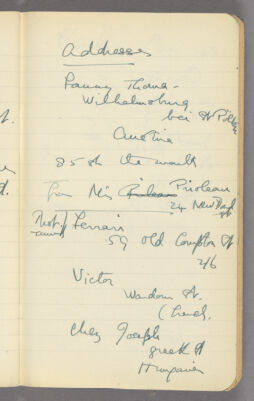 Addresses
Fanny Thoma-
Wilhelmsburg
bei St Pölten
Austria
85 sh the month
from Mrs Prioleau
24 New Bond St
Rest. Ferrari
59 Old Compton St
2/6
Victor
Wardour St.
(lunch.
Chez Joseph
Greek St
Hungarian